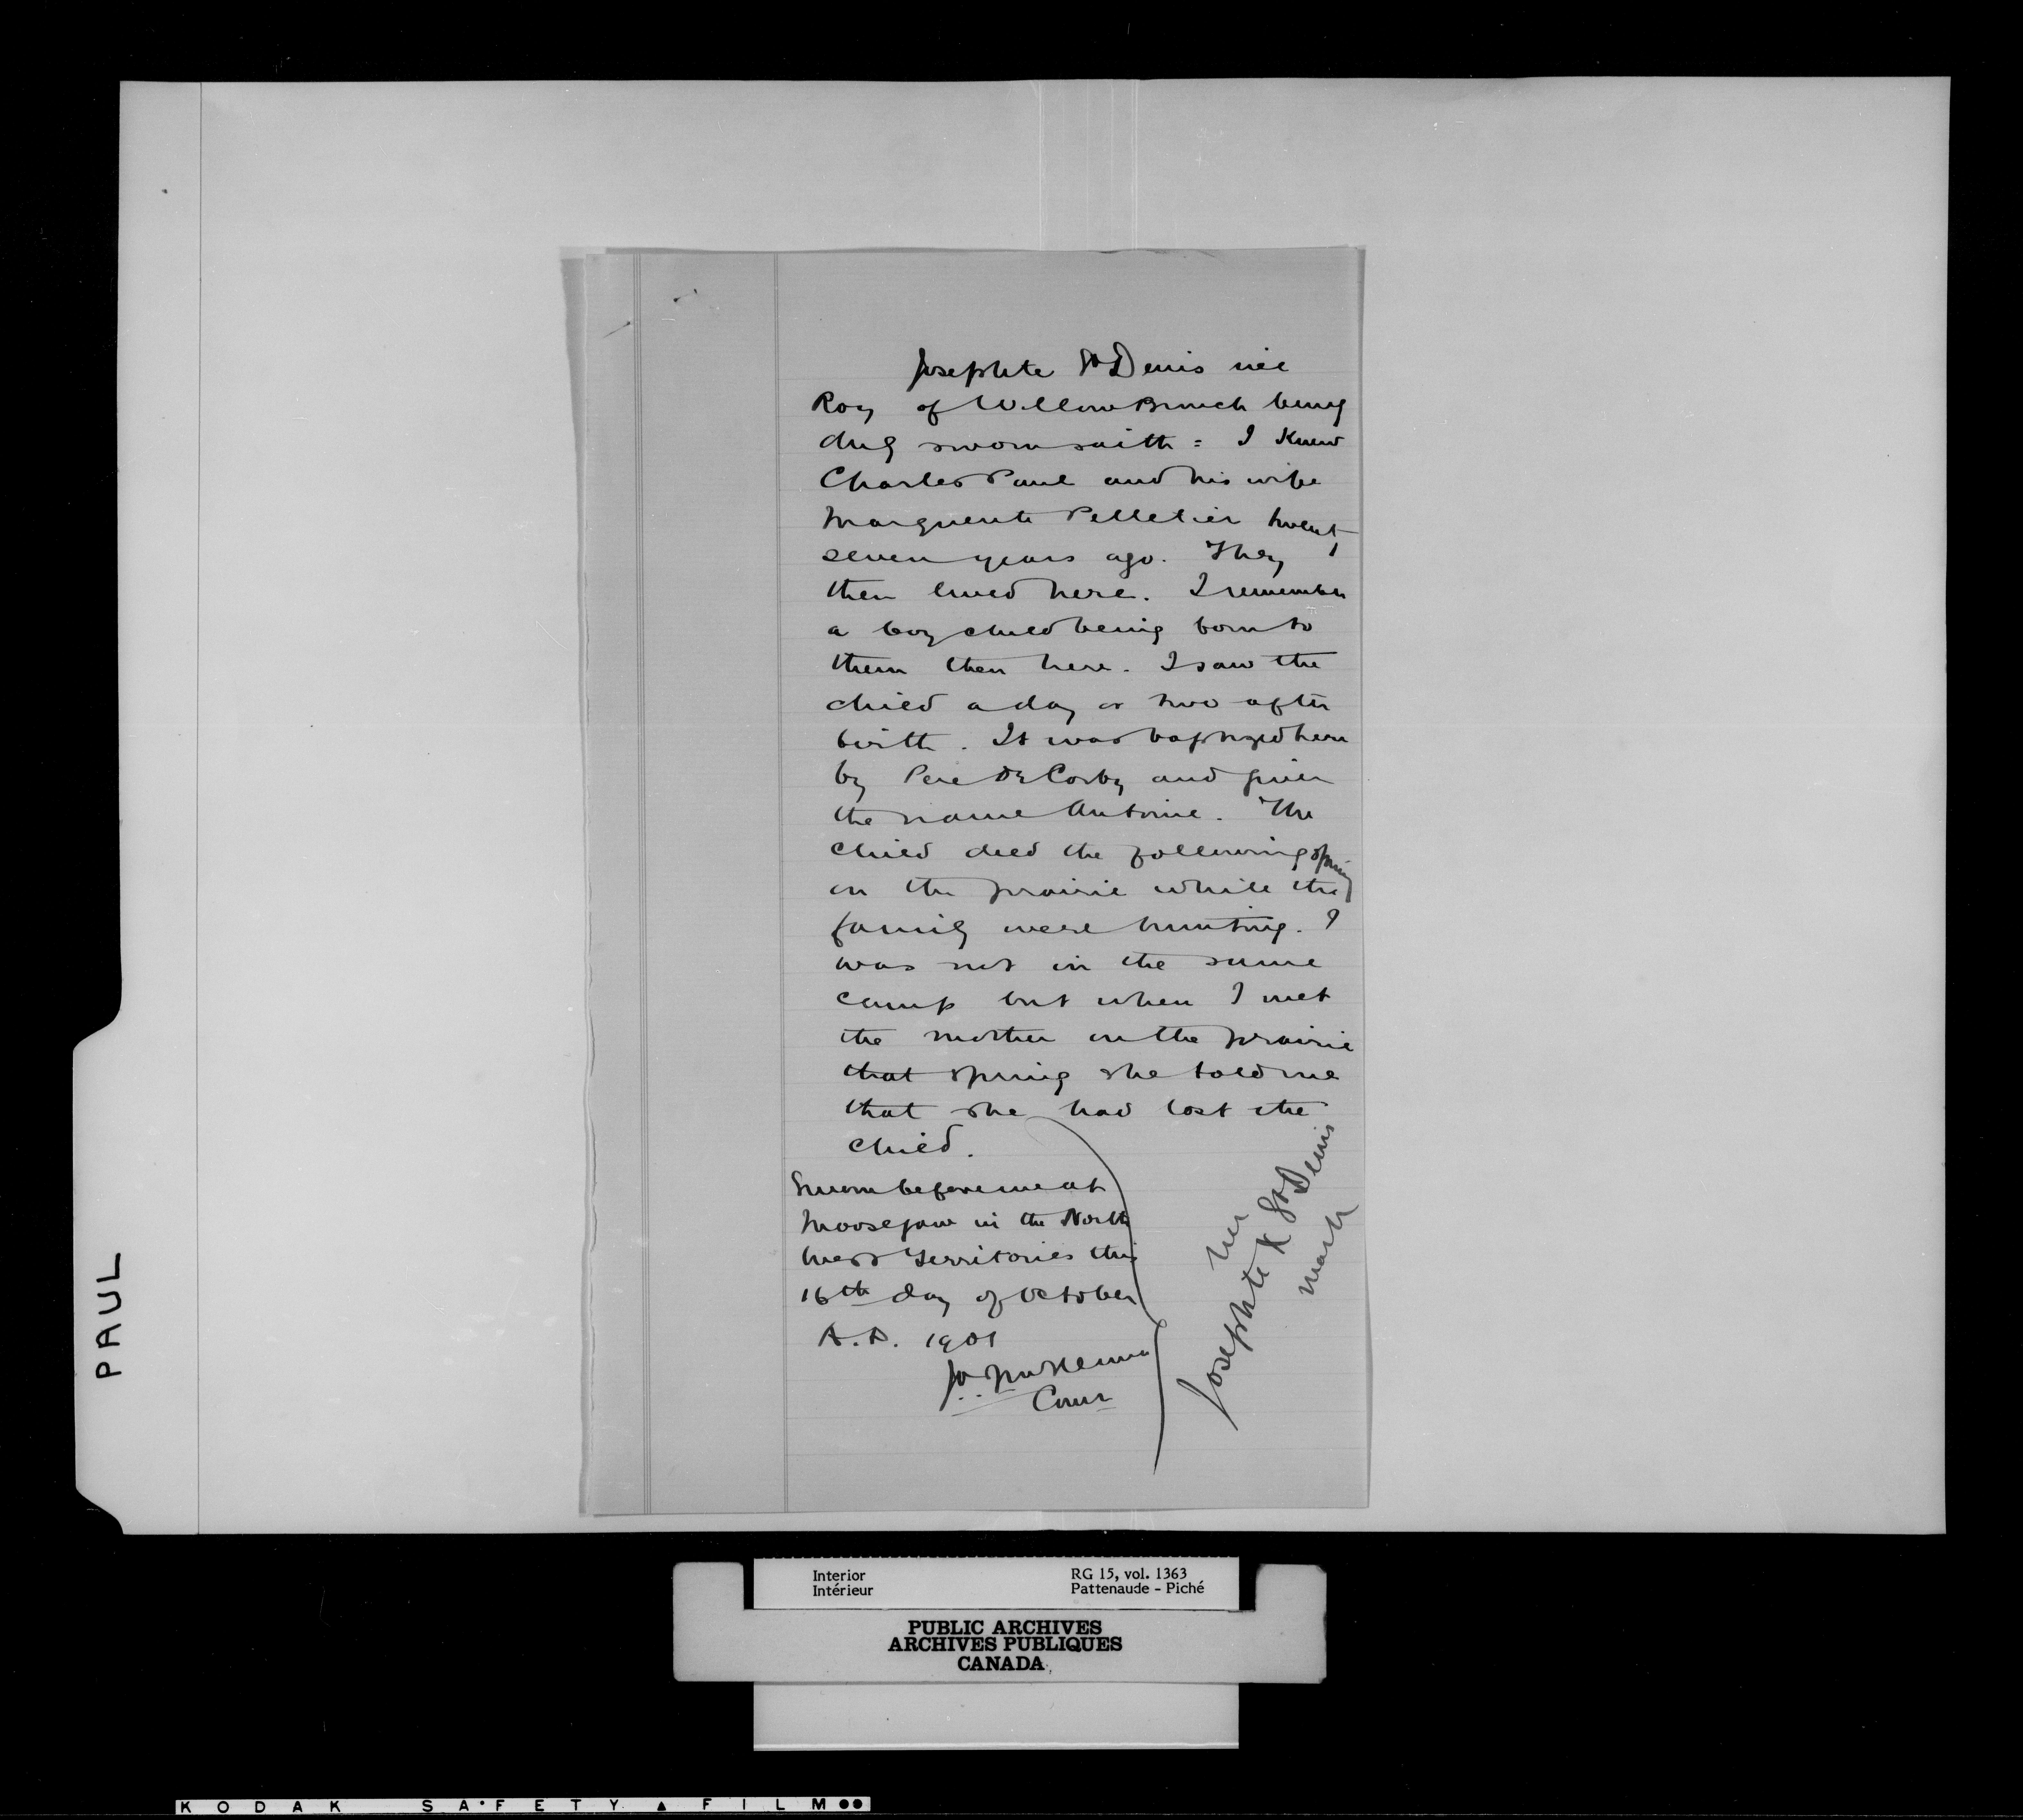 Josephte St Denis née
Roy of Willow Bunch being
duly sworn saith = I knew
Charles Paul and his wife
Marguerite Pelletier twenty
seven years ago. They
then lived here. I remember
a boy child being born to
them then here. I saw the
child a day or two after
birth. It was baptized here
by Pere De Corby and given
the name Antoine. The
child died the following spring
on the prairie while the
family were hunting. I
was not in the same
camp but when I met
the mother on the prairie
that spring she told me
that she had lost the
child.
Sworn before me at
Moosejaw in the North
West Territories this
16th day of October
A.D. 1901
J.A. McKenna
Comr
her
Josephte X St Denis
mark
PAUL
Interior
Intérieur
RG 15, vol. 1363
Pattenaude - Piché
PUBLIC ARCHIVES
ARCHIVES PUBLIQUES
CANADA
KODAK SAFETY ▲ FILM ●●